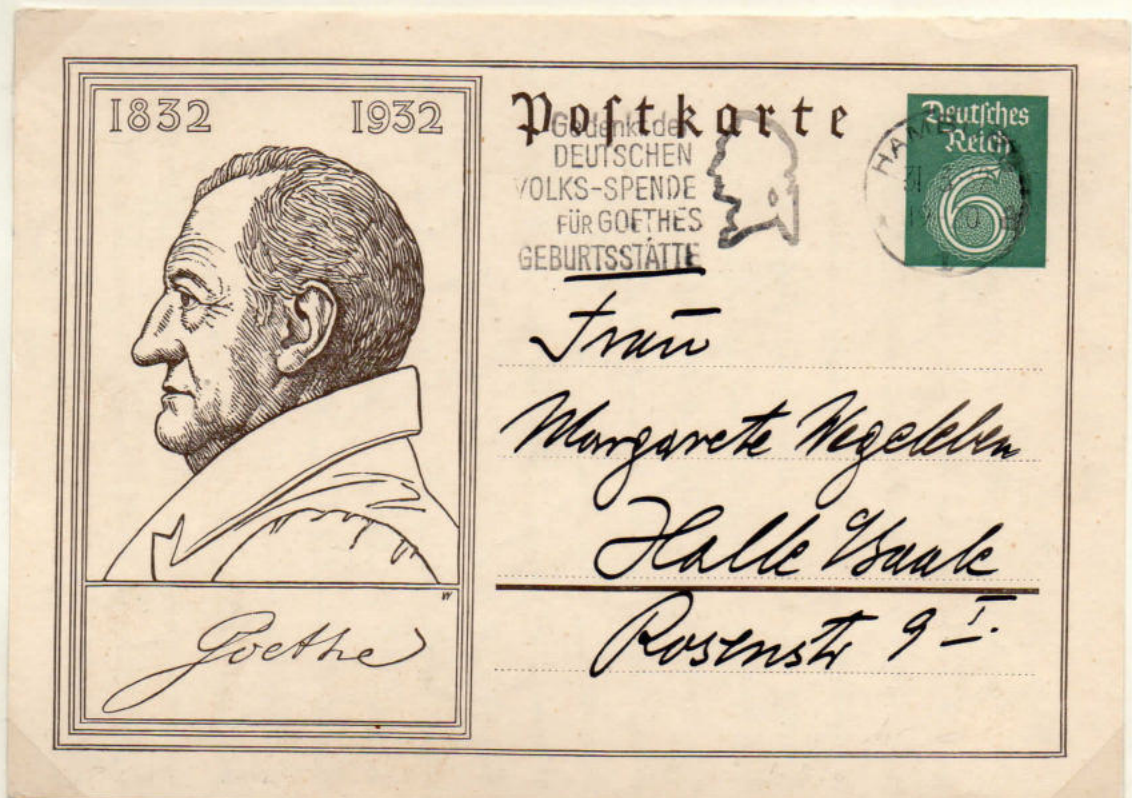 1832 1932
Goethe
Postkarte
Gedenkt der
DEUTSCHEN
VOLKS-SPENDE
FÜR GOETHES
GEBURTSSTÄTTE
Deutsches
Reich
6
Frau
Margarete Wegeleben
Halle /Saale
Rosenstr 9 I.